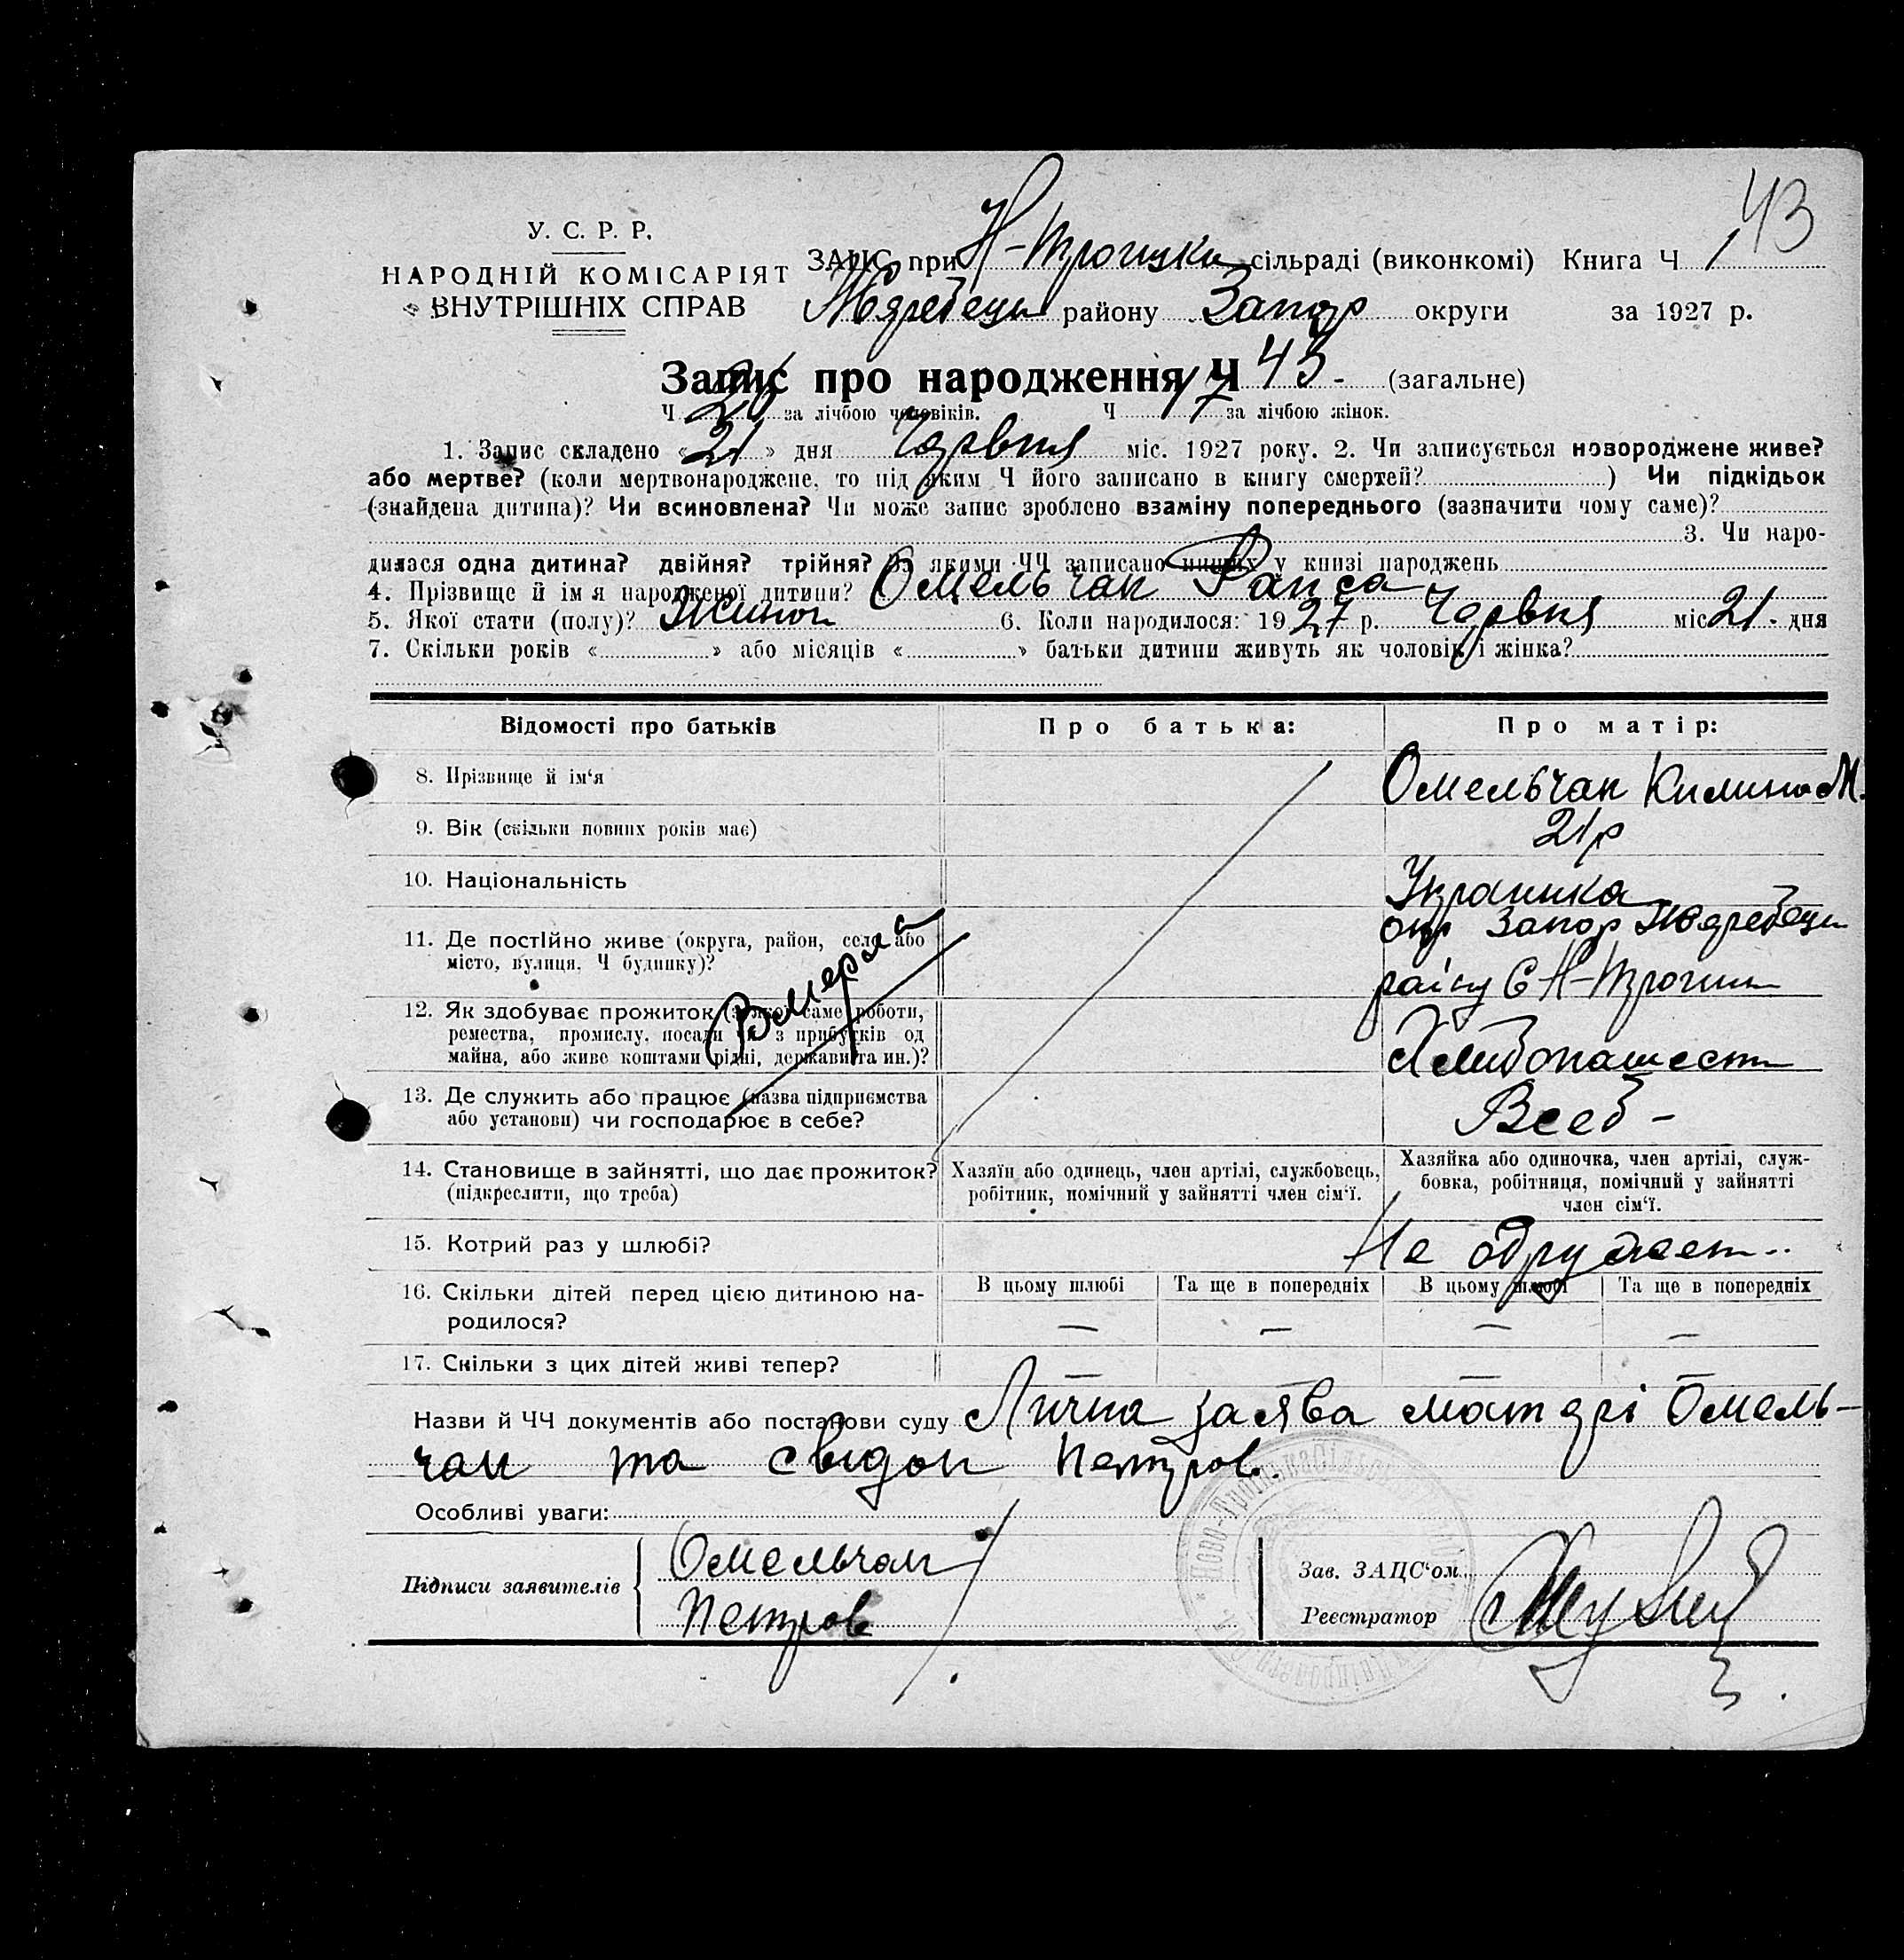 43
У. С. Р. Р.
НАРОДНІЙ КОМІСАРІЯТ
ВНУТРІШНІХ СПРАВ
ЗАПС при Н-Троицки сільраді (виконкомі) Книга Ч 1
району Запор округи за 1927 р.
Запис про народження Ч 43 - (загальне)
Ч 26 за лічбою чоловіків. Ч 17 за лічбою жінок.
1. Запис складено « 21 » дня Червня міс. 1927 року. 2. Чи записується новороджене живе?
або мертве? (коли мертвонароджене, то під яким Ч його записано в книгу смертей? ) Чи підкідьок
(знайдена дитина)? Чи всиновлена? Чи може запис зроблено взаміну попереднього (зазначити чому саме)?
3. Чи наро-
дилася одна дитина? двійня? трійня? За якими ЧЧ записано инших у книзі народжень
4. Прізвище й ім я народженої дитини? Омельчан Раиса
5. Якої стати (полу)? Жиноч 6. Коли народилося: 1927 р. Червня міс 21 - дня
7. Скільки років « » або місяців « » батьки дитини живуть як чоловік і жінка?
Відомості про батьків Про батька: Про матір:
8. Прізвище й ім‘я Омельчан Килина М.
9. Вік (скільки повних років має) 21 р
10. Національність Украинка
11. Де постійно живе (округа, район, село або місто, вулиця, Ч будинку)?
окр Запор
раіну С Н-Троицки
Вмерла
12. Як здобуває прожиток (з якої саме роботи,
ремества, промислу, посади чи з прибутків од
майна, або живе коштами рідні, держави та ин.)?
13. Де служить або працює (назва підприємства
або установи) чи господарює в себе?
Всеб -
14. Становище в зайнятті, що дає прожиток?
(підкреслити, що треба)
Хазяїн або одинець, член артілі, службовець,
робітник, помічний у зайнятті член сім‘ї.
Хазяйка або одиночка, член артілі, служ-
бовка, робітниця, помічний у зайнятті
член сім‘ї.
15. Котрий раз у шлюбі? Не
16. Скільки дітей перед цією дитиною на-
родилося?
В цьому шлюбі Та ще в попередніх В цьому шлюбі Та ще в попередніх
— — — —
17. Скільки з цих дітей живі тепер? — — — —
Назви й ЧЧ документів або постанови суду Лична заява матері Омель-
чан та свидок Петров
Особливі уваги:
Підписи заявителів
Омельчан
Петров
Зав. ЗАЦС‘ом
Реєстратор